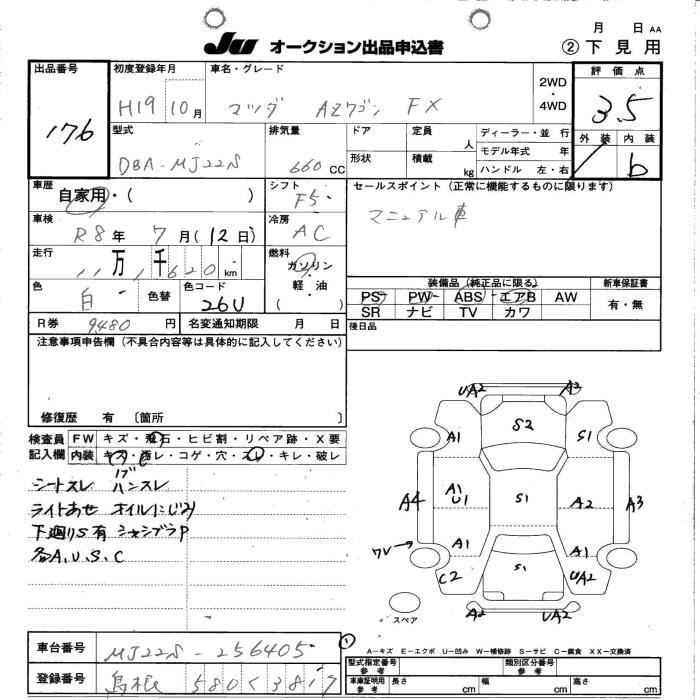 月 日 AA
Ju オークション出品申込書 ② 下見用
出品番号 初度登録年月 車名・グレード 2WD・4WD 評価点
176 H19 10月 マツダ AZワゴン FX 3.5
型式 排気量 ドア 定員 人 ディーラー・並行 外装 内装
DBA-MJ22S 660 CC 形状 積載 kg モデル年式 年 b
ハンドル 左・右
車歴 シフト セールスポイント (正常に機能するものに限ります)
自家用・( ) F5 マニュアル車
車検 冷房
R8年 7月(12日) AC
走行 燃料
11万1千620km ガソリン・軽油( )
装備品 (純正品に限る) 新車保証書
色 色替 色コード PS PW ABS エアB AW 有・無
白 26U SR ナビ TV カワ
R券 9480円 名変通知期限 月 日 後日品
注意事項申告欄 (不具合内容等は具体的に記入してください)
修復歴 有 〔箇所 〕
検査員記入欄 FW キズ・飛石・ヒビ割・リペア跡・X要
内装 キズ・汚レ・コゲ・穴・スレ・キレ・破レ
シートスレ ハンスレ
ライトあせ オイルにじみ
下廻りS有 シャシブラP
各A.U.S.C
UA2 A3
S2
A1 S1
A4 A1 U1 S1 A2 A3
ワレ→ A1 A1
C2 S1 UA2
A2 UA2
スペア
車台番号 MJ22S-256405
A-キズ E-エクボ U-凹み W-補修跡 S-サビ C-腐食 XX-交換済
登録番号 島根 580 く 3817
型式指定番号 参考 類別区分番号 参考
車庫証明用 参考 長さ cm 幅 cm 高さ cm